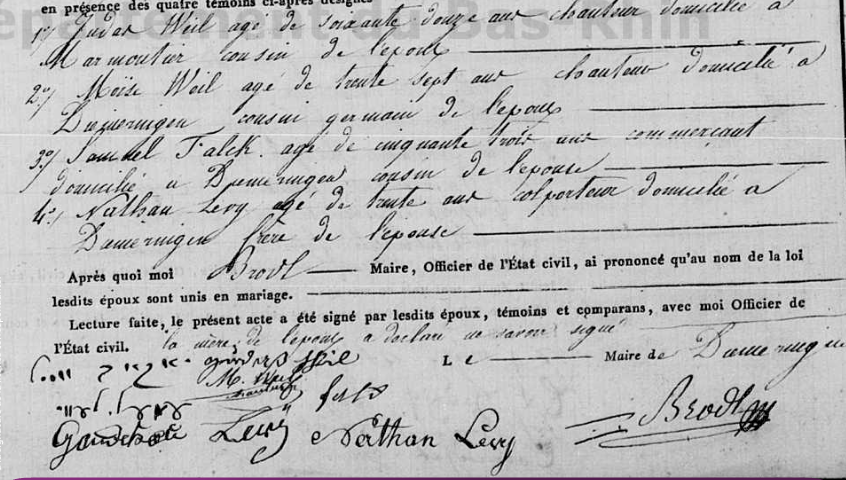 en présence des quatre témoins ci-après désignés
Département du Bas-Rhin
1º/ Judas Weil agé de soixante douze ans chanteur domicilié à
Marmoutier cousin de l'epoux
2º/ Moïse Weil agé de trente sept ans chanteur domicilié à
Diemeringen cousin germain de l'epoux
3º/ Samuel Falck agé de cinquante trois ans commerçant
domicilié a Diemeringen cousin de l'epouse
4º/ Nathan Levy agé de trente ans colporteur domicilié a
Diemeringen frère de l'epouse
Après quoi moi Brodt Maire, Officier de l'État civil, ai prononcé qu'au nom de la loi
lesdits époux sont unis en mariage.
Lecture faite, le présent acte a été signé par lesdits époux, témoins et comparans, avec moi Officier de
l'État civil. la mère de l'epoux a declaré ne savoir signé
Le Maire de Diemeringen
M. Weil
chanteur
Levÿ Nathan Levy Brodt